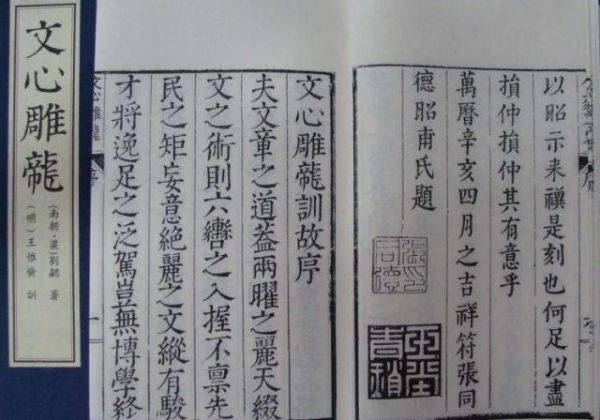 文心雕龍
(南朝·梁)劉勰 著
(明)王惟儉 訓
以昭示来禩是刻也何足以盡
損仲損仲其有意乎
萬曆辛亥四月之吉祥符張同
德昭甫氏題
文心雕龍訓故序
夫文章之道蓋兩曜之麗天綴
文之術則六轡之入握不禀先
民之矩妄意絶麗之文縱有駿
才將逸足之泛駕豈無博學終
文心雕龍 序 一